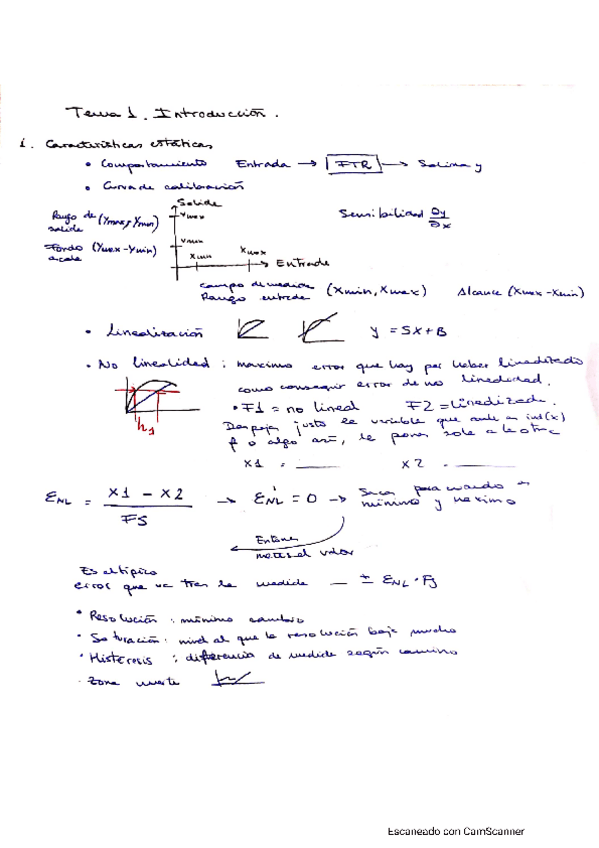 Tema 1. Introducción.
1. Características estáticas
• Comportamiento Entrada → FTR → Salida y
• Curva de calibración
Salida
Rango de salida (Ymax, Ymin)
Ymax
Sensibilidad ∂y/∂x
Fondo escala (Ymax-Ymin)
Ymin
Xmin Xmax
Entrada
Campo de medida
Rango entrada (Xmin, Xmax) Alcance (Xmax-Xmin)
• Linealización y = Sx+B
• No linealidad : maximo error que hay por haber linealizado
como conseguir error de no linealidad.
h1
• F1 = no lineal F2 = Linealizada.
Despejas justo la variable que ande en int(x)
f o algo así, le pones sole a la otra
x1 = ____ x2 = ____
ENL = x1 - x2 / FS → E'NL = 0 → Sacas para cuando es
mínimo y maximo
Entonces
metes el valor
Es el típico
error que va tras la medida — ± ENL · FS
• Resolución : mínimo cambio
• Saturación : nivel al que la resolución baja mucho
• Histeresis : diferencia de medida según camino
· Zona muerta
Escaneado con CamScanner